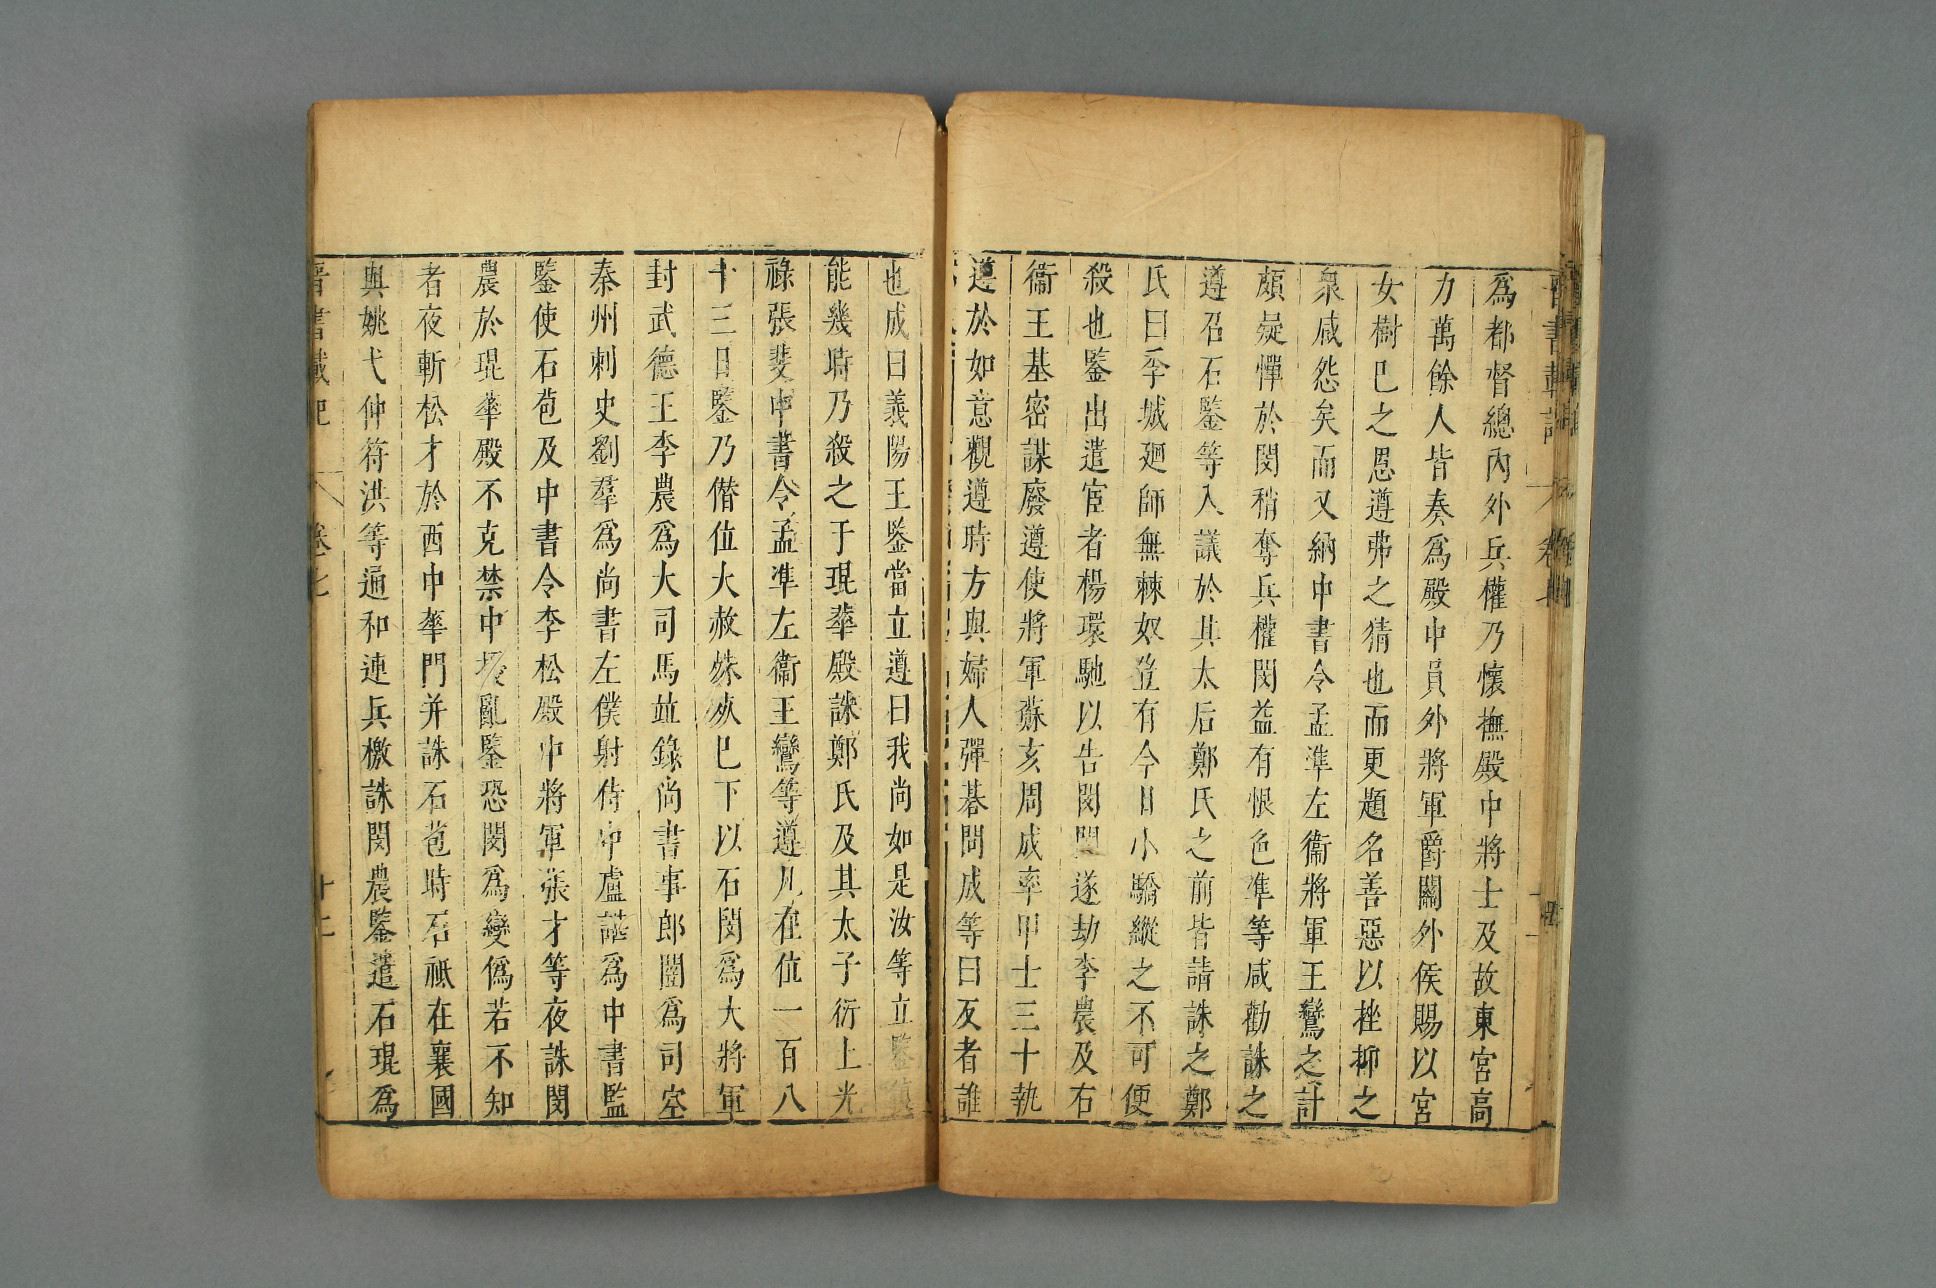 爲都督總內外兵權乃懷撫殿中將士及故東宮高
力萬餘人皆奏爲殿中員外將軍爵關外侯賜以宮
女樹巳之恩遵弗之猜也而更題名善惡以挫抑之
衆咸怨矣而又納中書令孟準左衞將軍王鸞之計
頗疑憚於閔稍奪兵權閔益有恨色準等咸勸誅之
遵召石鑒等入議於其太后鄭氏之前皆請誅之鄭
氏曰季城廻師無棘奴登有今日小驕縱之不可便
殺也鑒出遣宦者楊環馳以告閔閔遂劫李農及右
衞王基密謀廢遵使將軍蘇亥周成率甲士三十執
遵於如意觀遵時方與婦人彈碁問成等曰反者誰
也成曰義陽王鑒當立遵曰我尚如是汝等立鑒復
能幾時乃殺之于琨華殿誅鄭氏及其太子衍上光
祿張斐中書令孟準左衞王鸞等遵凡在位一百八
十三日鑒乃僭位大赦殊死巳下以石閔爲大將軍
封武德王李農爲大司馬並錄尚書事郎闓爲司空
秦州刺史劉羣爲尚書左僕射侍中盧諶爲中書監
鑒使石苞及中書令李松殿中將軍張才等夜誅閔
農於琨華殿不克禁中擾亂鑒恐閔爲變僞若不知
者夜斬松才於西中華門并誅石苞時石祗在襄國
與姚弋仲符洪等通和連兵檄誅閔農鑒遣石琨爲
晉書載記 卷七